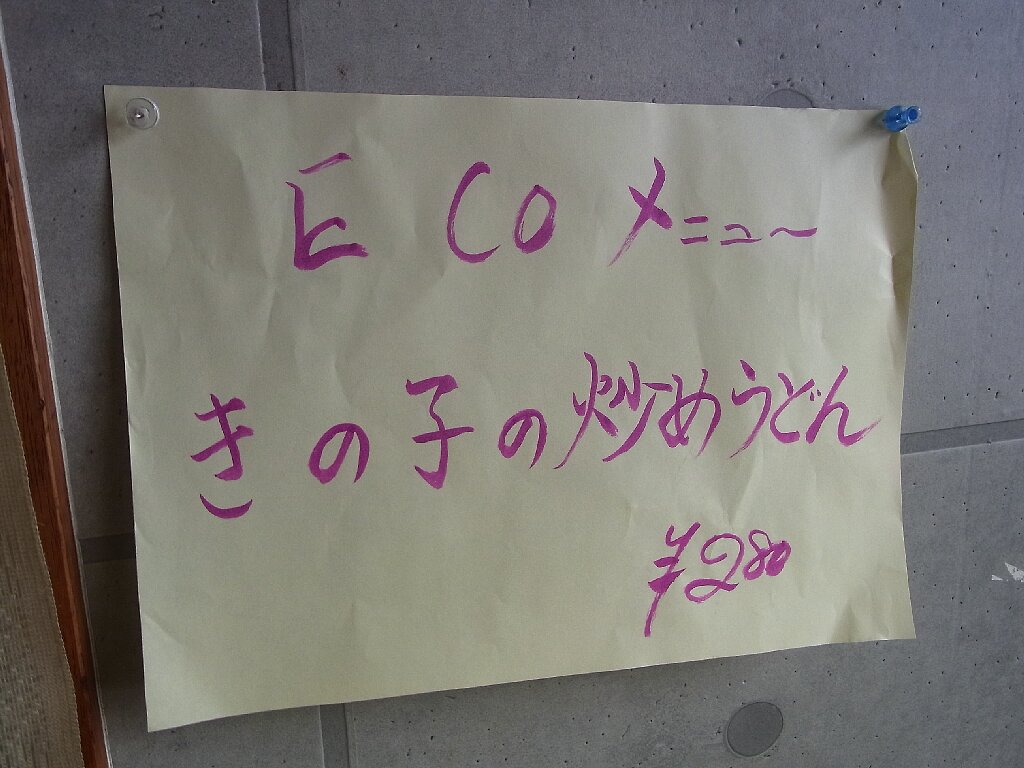 ECOメニュー
きの子の炒めうどん
¥280